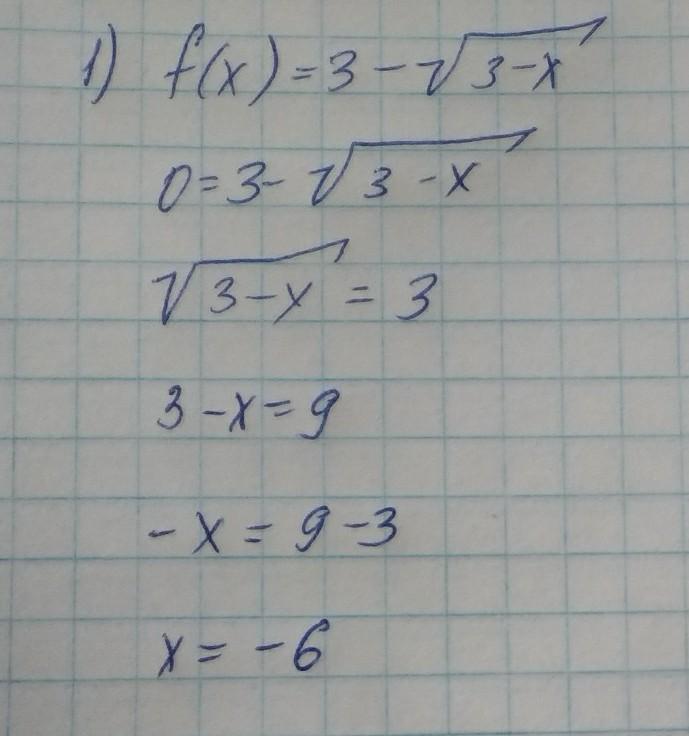 1) f(x) = 3 - √(3-x)
0 = 3 - √(3-x)
√(3-x) = 3
3 - x = 9
-x = 9 - 3
x = -6